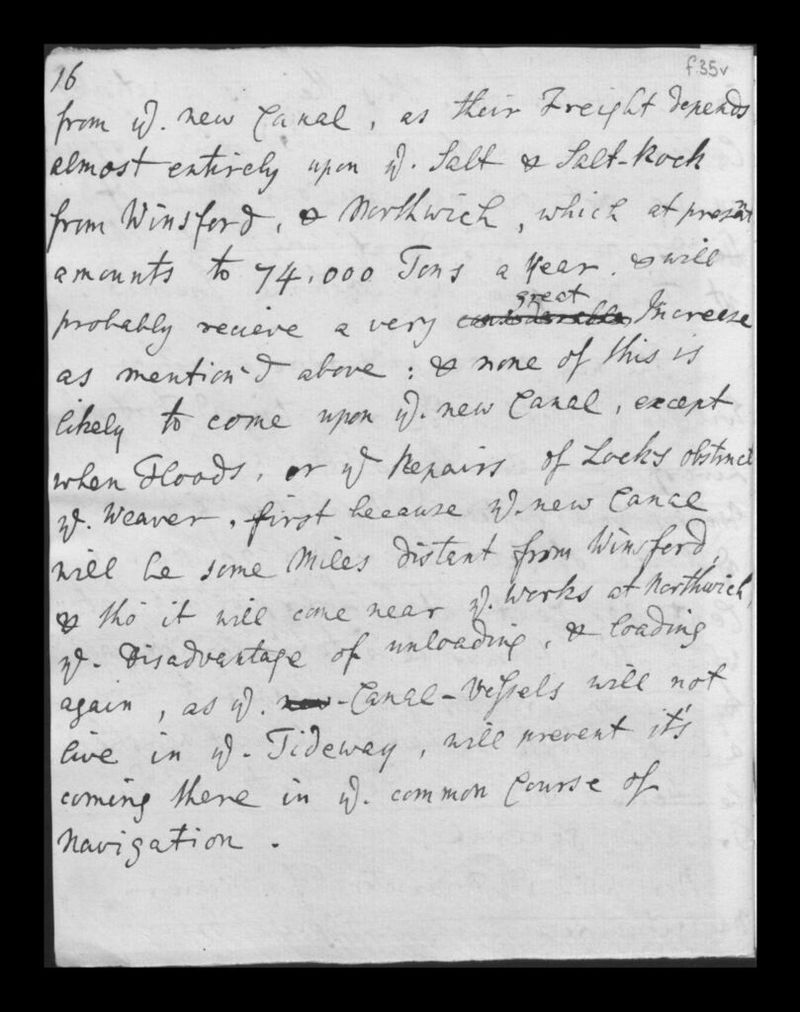 16
f35v
from ye. new Canal, as their Freight depends
almost entirely upon ye. Salt & Salt-Rock
from Winsford, & Northwich, which at present
amounts to 74,000 Tons a Year. & will
great
probably recieve a very considerable Increese
as mention'd above: & none of this is
likely to come upon ye. new Canal, except
when Floods, or ye Repairs of Locks obstruct
ye. Weaver, first because ye. new Canal
will be some Miles distant from Winsford,
& tho' it will come near ye. works at Northwich,
ye. Disadvantage of unloading, & loading
again, as ye. new-Canal-Vessels will not
live in ye. Tideway, will prevent it's
coming there in ye. common Course of
Navigation.